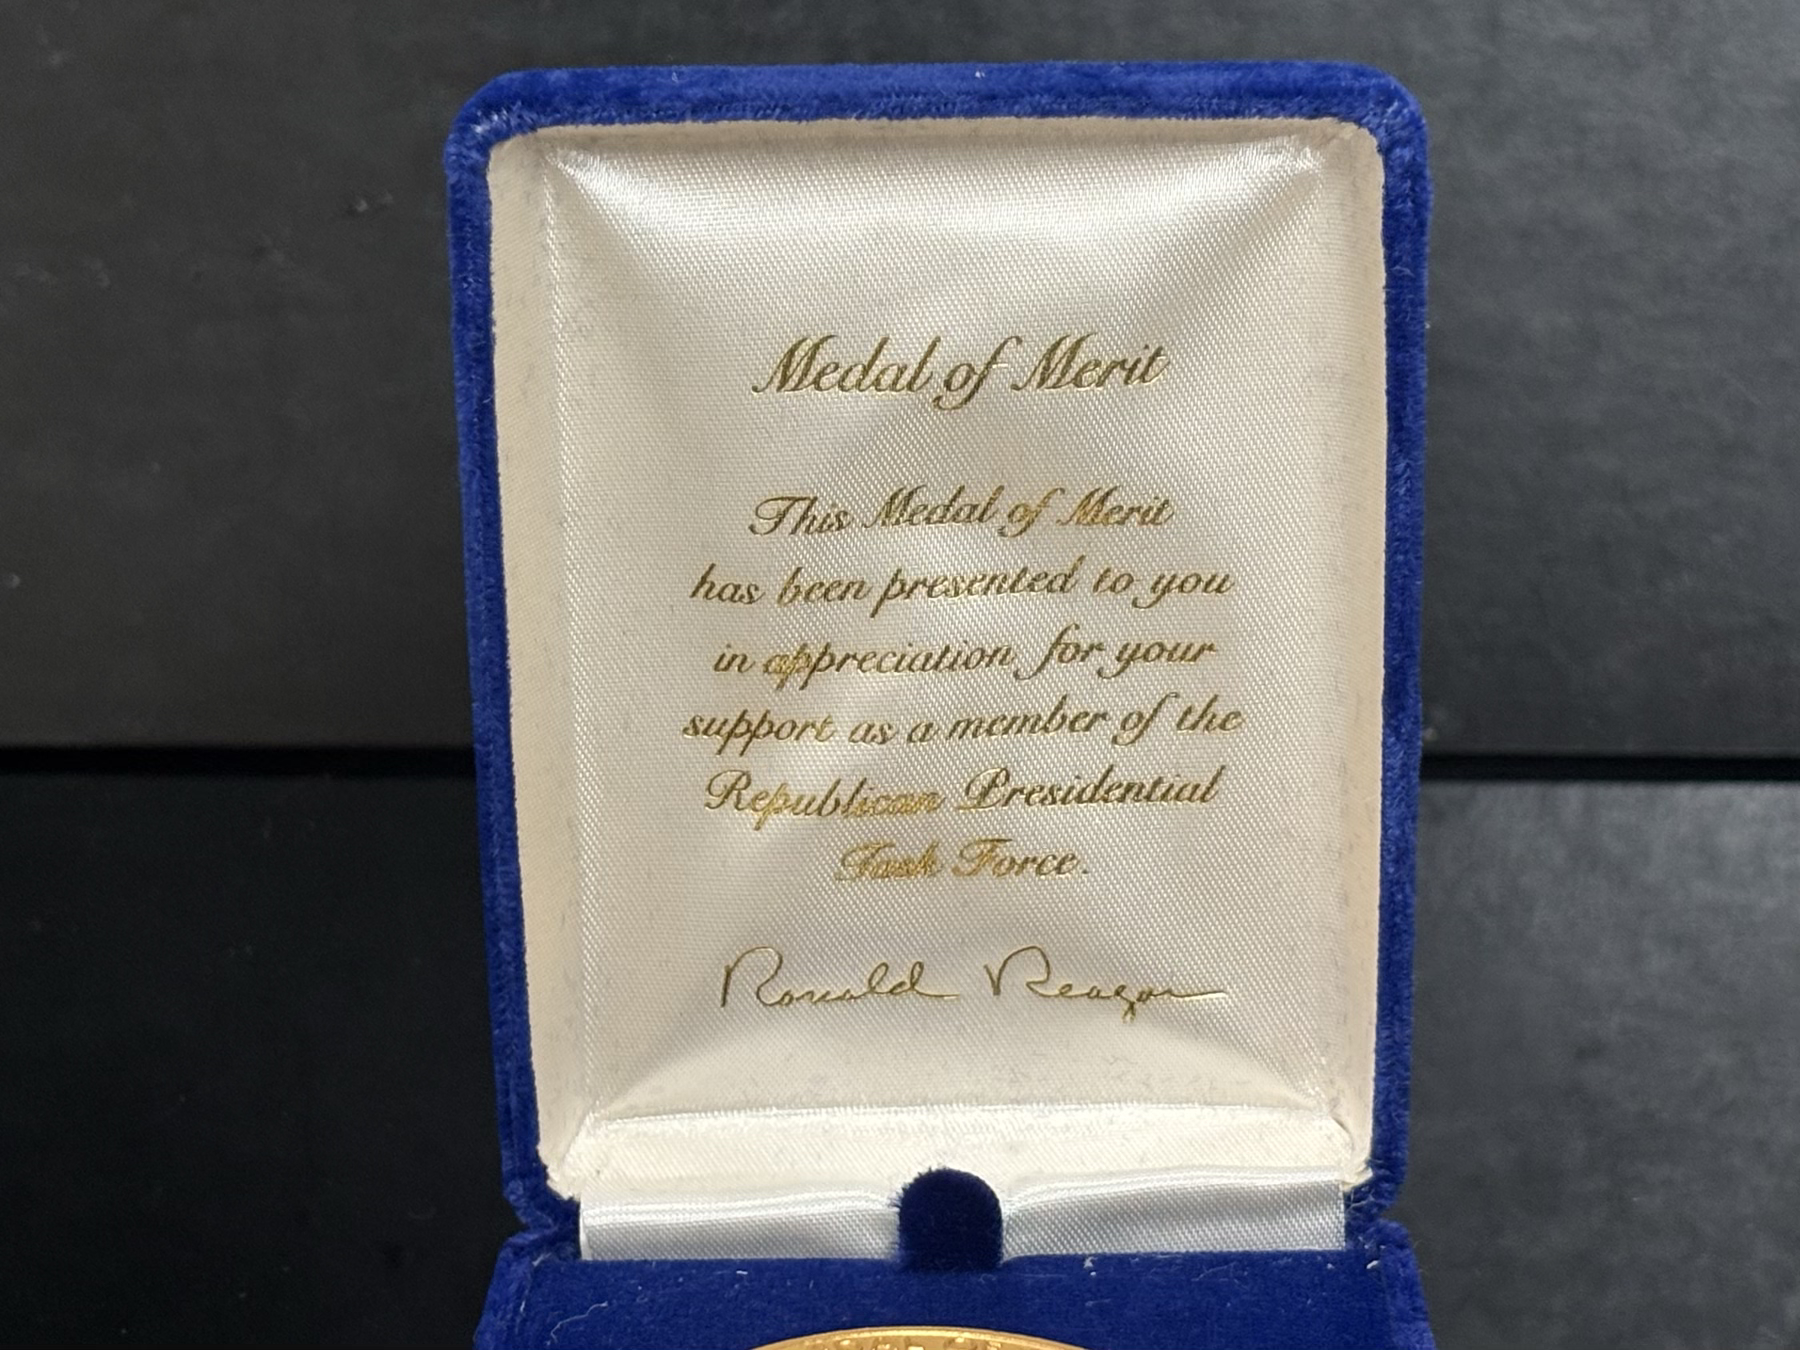 Medal of Merit
This Medal of Merit
has been presented to you
in appreciation for your
support as a member of the
Republican Presidential
Task Force.
Ronald Reagan